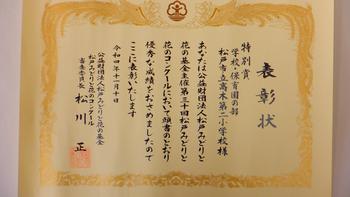 表彰状
特別賞
学校・保育園の部
松戸市立高木第二小学校様
あなたは公益財団法人松戸みどりと
花の基金主催第三十回松戸みどりと
花のコンクールにおいて頭書のとおり
優秀な成績をおさめましたので
ここに表彰いたします
令和四年十一月十日
公益財団法人松戸みどりと花の基金
松戸みどりと花のコンクール
審査委員長 松川正